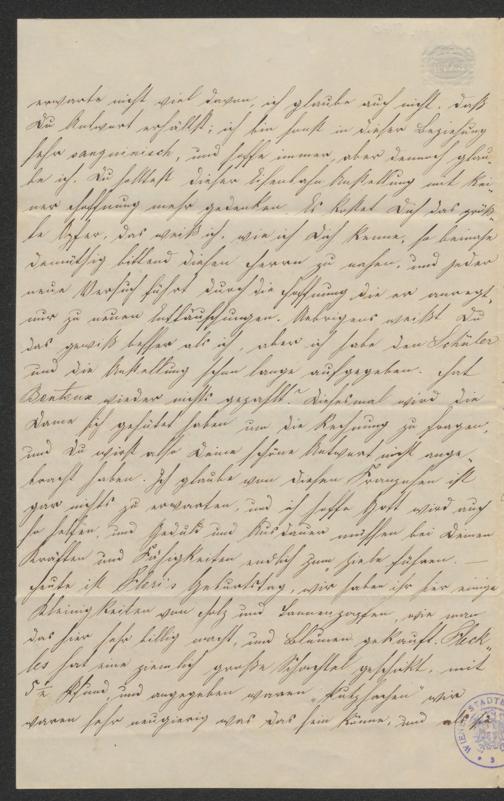 erwarte nicht viel davon, ich glaube auch nicht, daß
Du Antwort erhältst; ich bin sonst in dieser Beziehung
sehr sanguinisch, und hoffe immer, aber dennoch glau
be ich. Du solltest dieser Eisenbahn Anstellung mit kei
ner Hoffnung mehr gedenken. Es kostet Dich das größ
te Opfer, das weiß ich, wie ich Dich kenne, so beinahe
demüthig bittend diesen Herrn zu nahen, und jeder
neue Versuch führt durch die Hoffnung die er anregt
nur zu neuen Enttäuschungen. Uebrigens weißt Du
das gewiß besser als ich, aber ich habe den Schüler
und die Anstellung schon lange aufgegeben. Hat
wieder nichts gezahlt? Diesesmal wird die
Dame sich gehütet haben um die Rechnung zu fragen,
und Du wirst also Deine schöne Antwort nicht ange-
bracht haben. Ich glaube von diesen Franzosen ist
gar nichts zu erwarten, und ich hoffe Gott wird auch
so helfen, und Geduld und Ausdauer müssen bei Deinen
Kräften und Fähigkeiten endlich zum Ziele führen. —
Heute ist Geburtstag, wir haben ihr hier einige
Kleinigkeiten von Holz und Tannenzapfen, wie man
das hier sehr billig macht, und Blumen gekauft. Fleck-
les hat eine ziemlich große Schachtel geschickt, mit
5 ½ Pfund, und angegeben waren „Putzsachen" wir
waren sehr neugierig was das sein könne, und als
WIENER STADTB